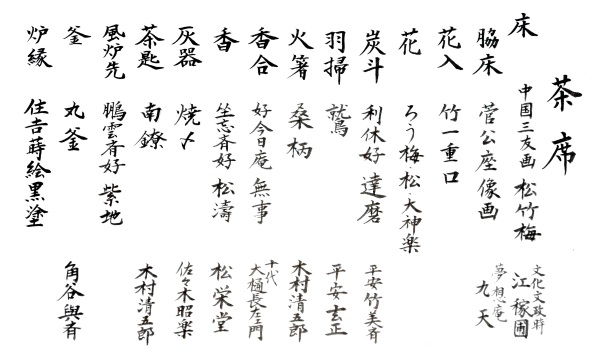 茶席
床 中国三友画 松竹梅 文化文政時 江稼圃
脇床 菅公座像画 夢想庵 九天
花入 竹一重口
花 ろう梅・松・大神楽
炭斗 利休好 達磨 平安竹美斉
羽掃 鷲 平安玄正
火箸 桑柄 木村清五郎
香合 好今日庵 無事 十代 大樋長左ヱ門
香 坐忘斉好 松濤 松栄堂
灰器 焼〆 佐々木昭楽
茶匙 南鐐 木村清五郎
風炉先 鵬雲斉好 紫地
釜 丸釜 角谷與斉
炉縁 住吉蒔絵黒塗